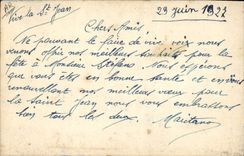 Vive la St Jean
23 juin 1921
Chers Amis,
Ne pouvant le faire de vive voix nous
venons offrir nos meilleurs souhaits pour la
fête à Monsieur Stéfano. Nous espérons
que vous êtes en bonne santé et en
renouvellant nos meilleurs vœux pour
la Saint Jean nous vous embrassons
bien tous les deux.
Maritano